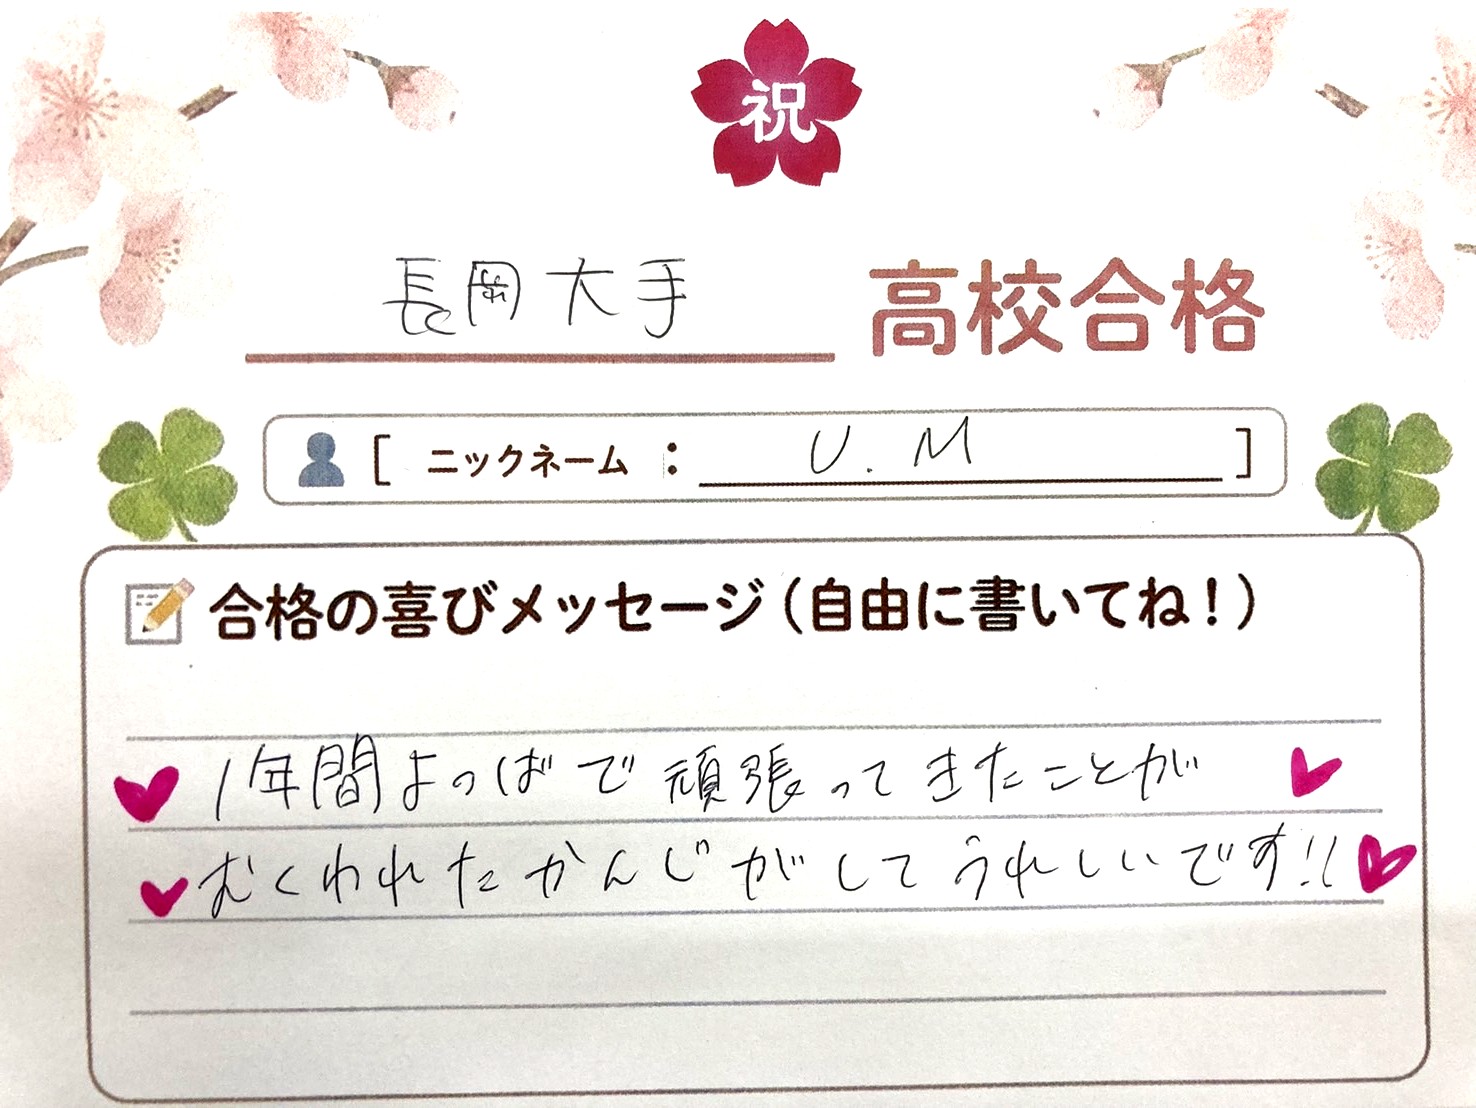 祝
長岡大手 高校合格
[ ニックネーム : U.M ]
合格の喜びメッセージ(自由に書いてね!)
1年間よつばで頑張ってきたことが
むくわれたかんじがしてうれしいです!!